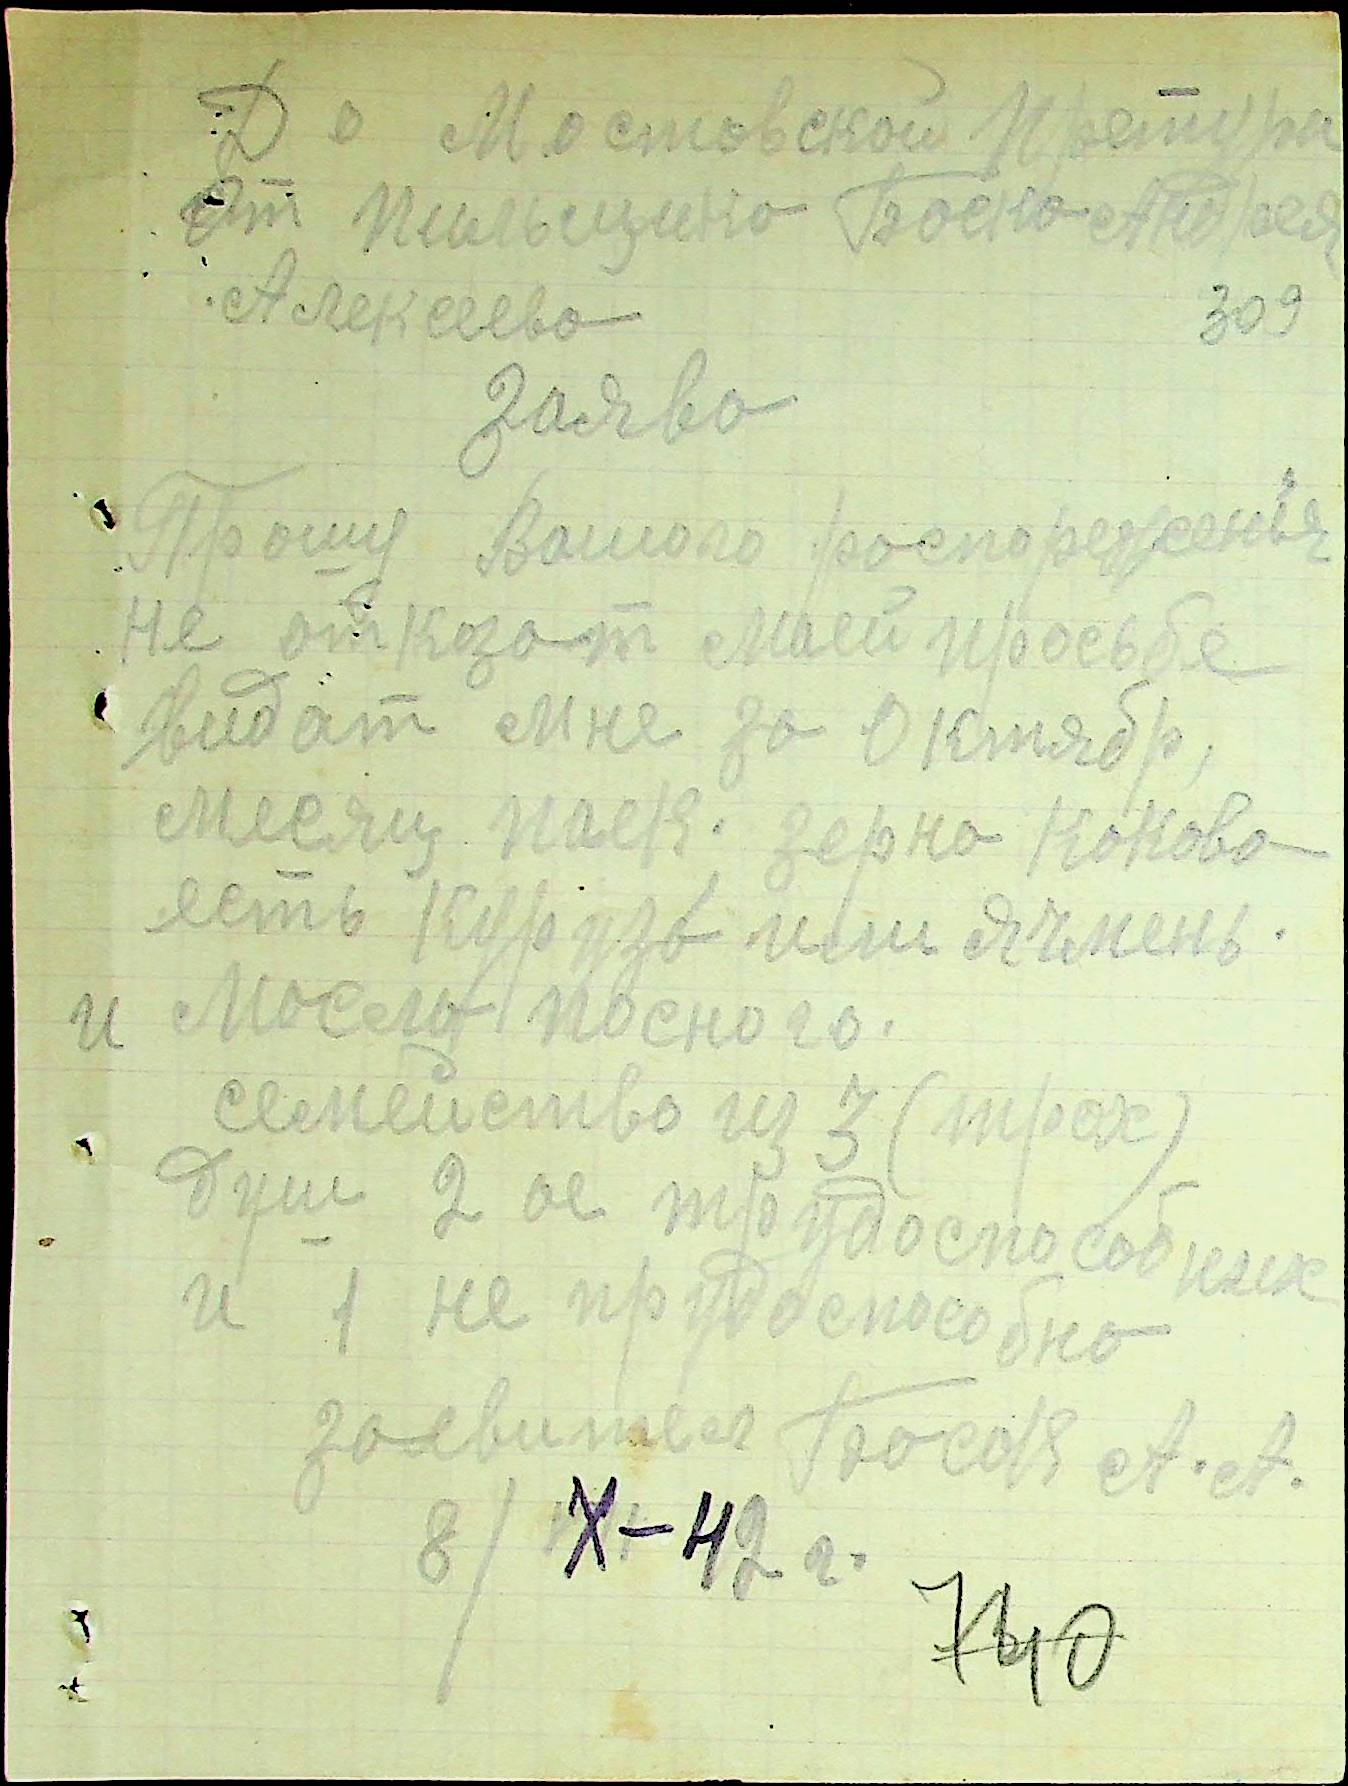 До Мостовской Претури
От Пильщика Босюка Андрея
Алексеева
309
Заява
Прошу Вашого роспореженья
не отказат маей просьбе
видат мне за Октябр,
месяц паек. зерна какова
есть Курузы или ячмень.
и Масла посного.
семейства из 3 (трох)
душ 2 ое трудоспособних
и 1 не трудоспособна
заевител Босюк А.А.
8/X-42 г.
740